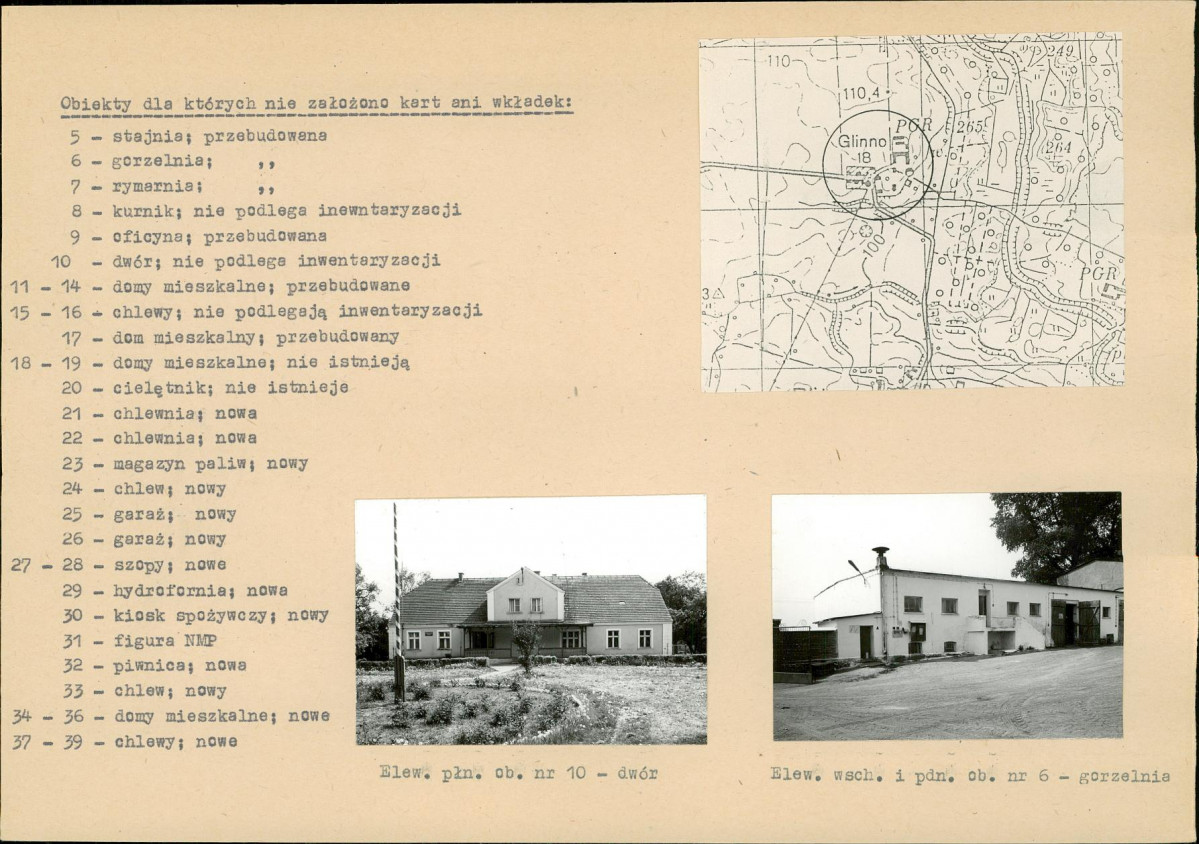 Obiekty dla których nie założono kart ani wkładek:
5 - stajnia; przebudowana
6 - gorzelnia; ,,
7 - rymarnia; ,,
8 - kurnik; nie podlega inewntaryzacji
9 - oficyna; przebudowana
10 - dwór; nie podlega inwentaryzacji
11 - 14 - domy mieszkalne; przebudowane
15 - 16 - chlewy; nie podlegają inwentaryzacji
17 - dom mieszkalny; przebudowany
18 - 19 - domy mieszkalne; nie istnieją
20 - cielętnik; nie istnieje
21 - chlewnia; nowa
22 - chlewnia; nowa
23 - magazyn paliw; nowy
24 - chlew; nowy
25 - garaż; nowy
26 - garaż; nowy
27 - 28 - szopy; nowe
29 - hydrofornia; nowa
30 - kiosk spożywczy; nowy
31 - figura NMP
32 - piwnica; nowa
33 - chlew; nowy
34 - 36 - domy mieszkalne; nowe
37 - 39 - chlewy; nowe
110
249
110,4
PGR
265
Glinno
18
264
100
PGR
Elew. płn. ob. nr 10 - dwór
Elew. wsch. i pdn. ob. nr 6 - gorzelnia